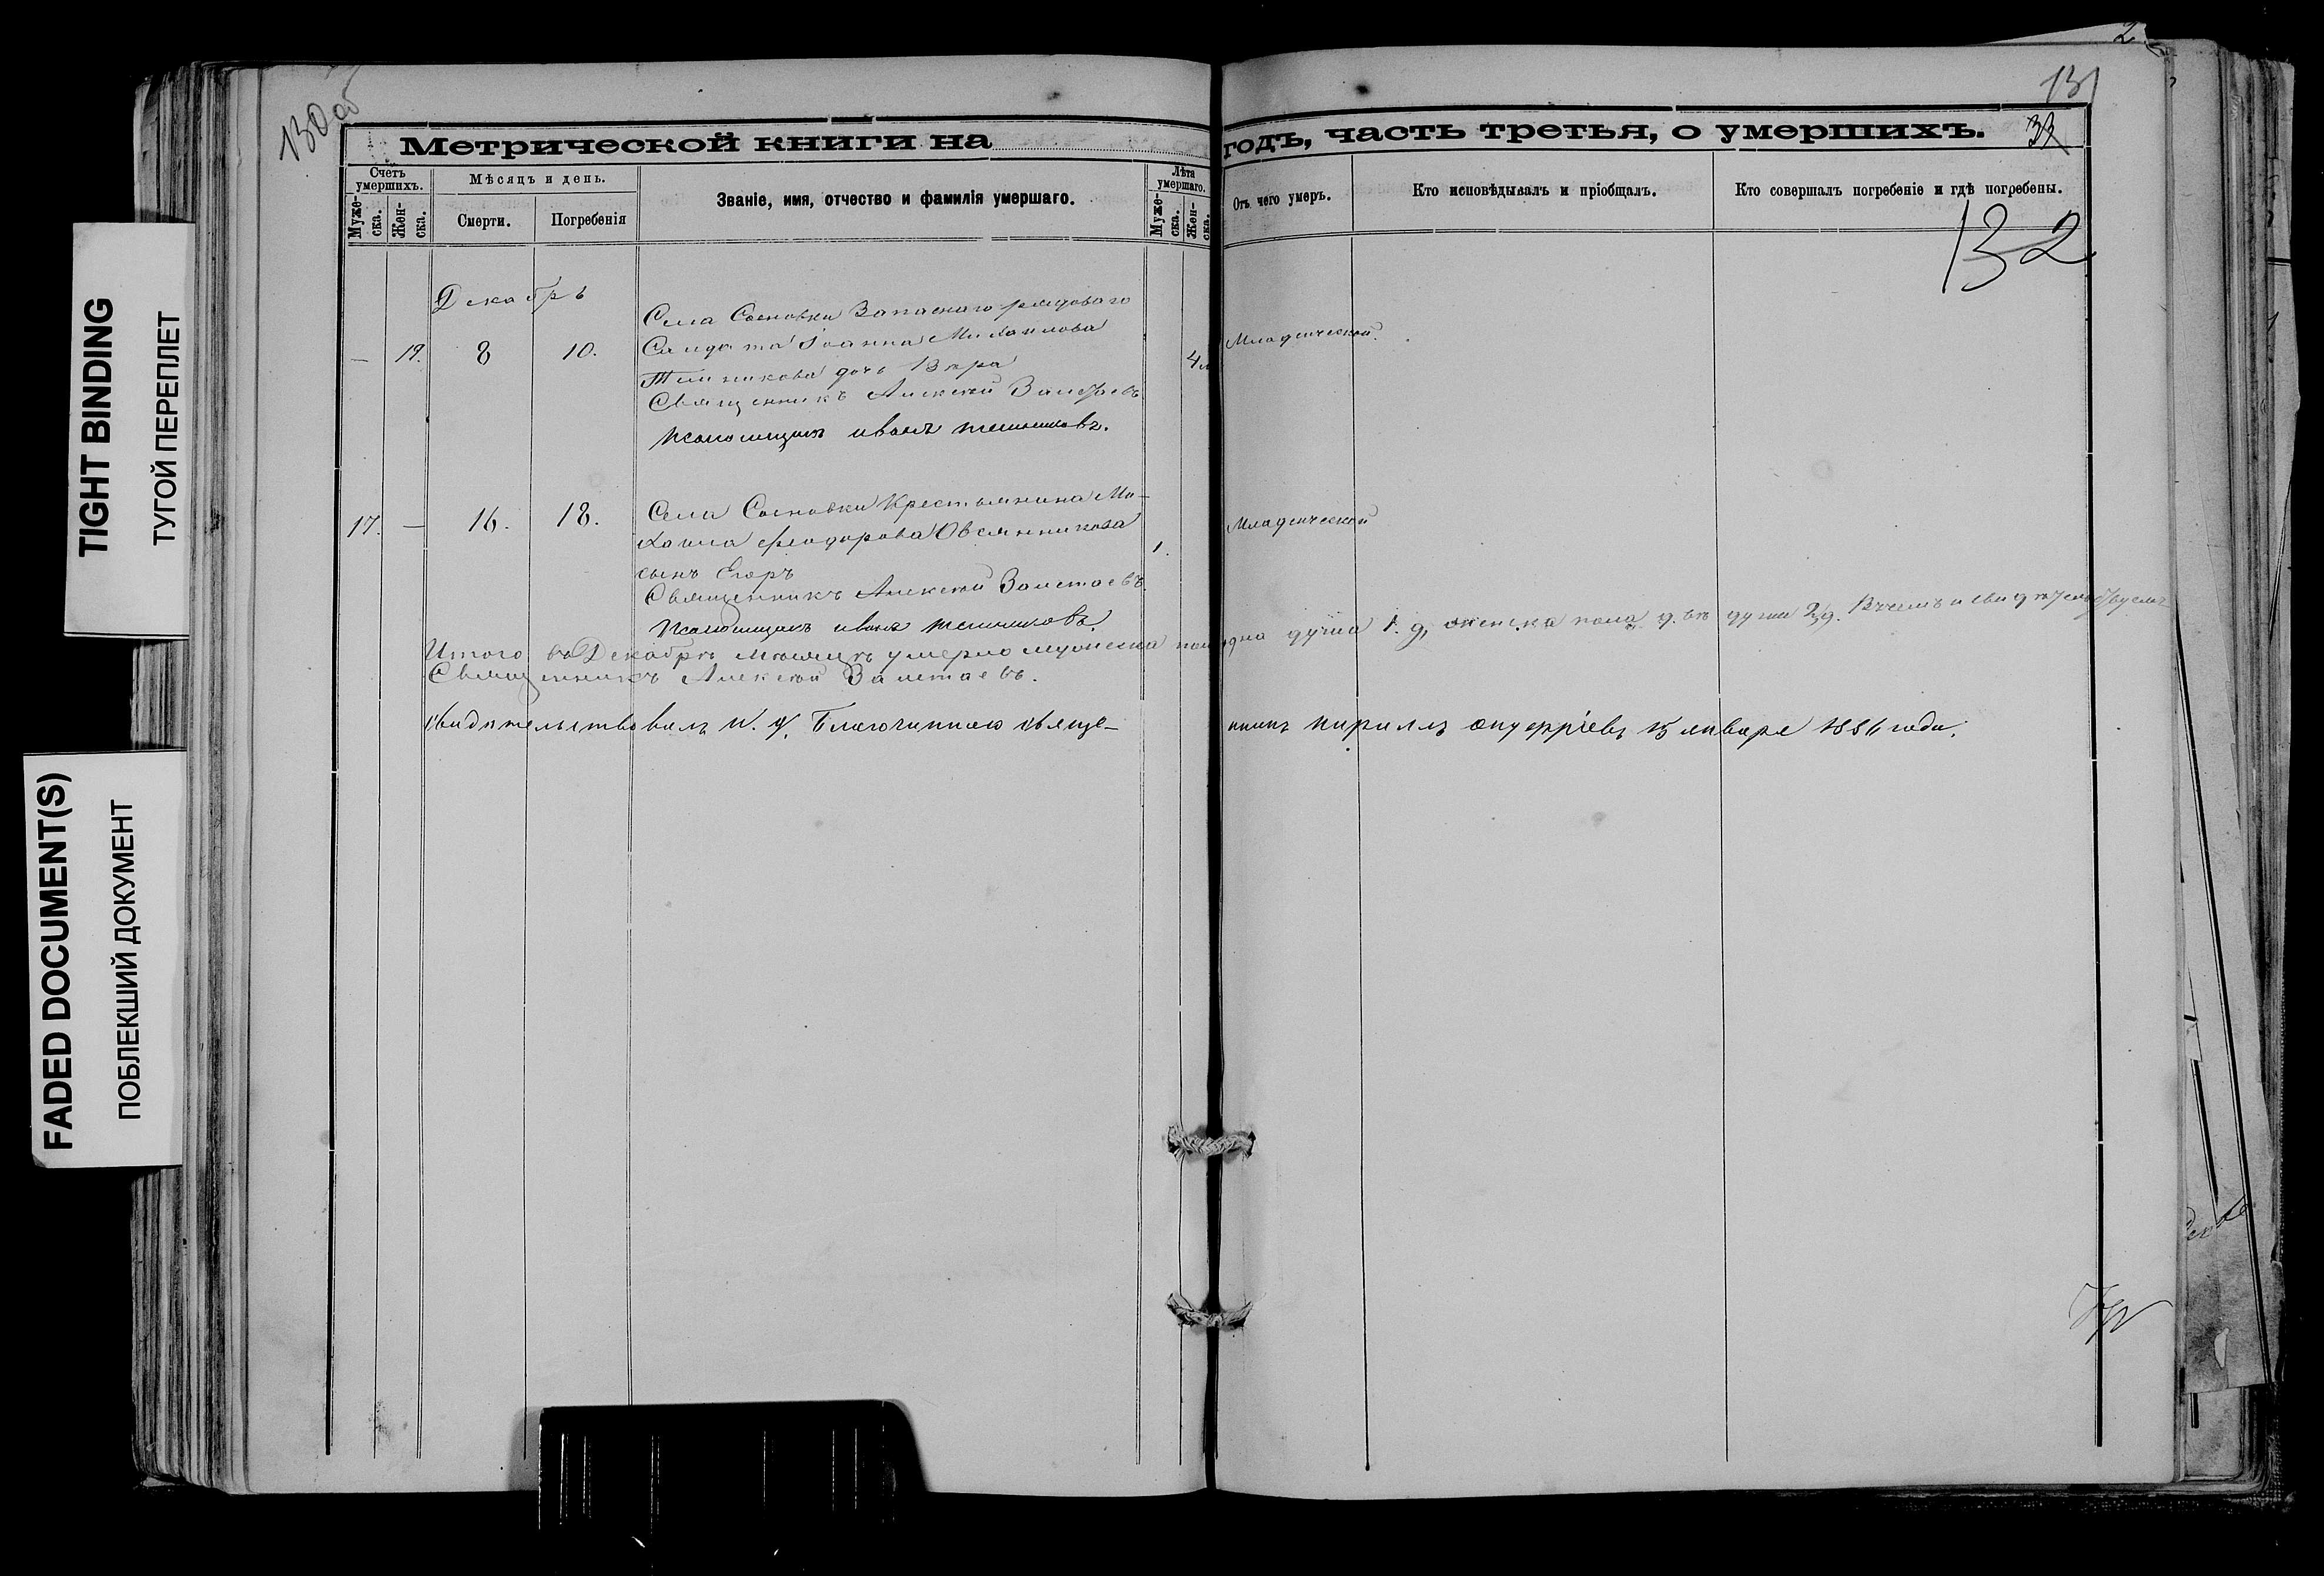 130 об
131
32
132
Метрической книги на годъ, часть третья, о умершихъ.
Счетъ умершихъ.
Муже-ска.
Жен-ска.
Мѣсяцъ и день.
Смерти.
Погребенія
Званіе, имя, отчество и фамилія умершаго.
Лѣта умершаго.
Муже-ска.
Жен-ска.
Отъ чего умеръ.
Кто исповѣдывалъ и пріобщалъ.
Кто совершалъ погребеніе и гдѣ погребены.
Декабрь
— 19. 8 10.
Села Сосновки Запаснаго рядоваго
Солдата Іоанна Михаилова
дочь Вѣра
4
Младенческой.
Священникъ Алексѣй
Псаломщикъ иванъ
17. — 16. 18.
Села Сосновки Крестьянина Ми-
хаила Феодорова Овсянникова
сынъ Егоръ
1.
Младенческой
Священникъ Алексѣй
Псаломщикъ иванъ
Итого въ Декабрѣ мѣсяцѣ умерло мужеска пола одна душа 1. д, женска пола двѣ души 2 д. В чемъ и свидѣтельствуемъ
Священникъ Алексѣй
Свидѣтельствовалъ И. д. Благочиннаго Свяще-
нникъ Кириллъ Онуфріевъ 15 января 1886 года.
TIGHT BINDING
ТУГОЙ ПЕРЕПЛЕТ
FADED DOCUMENT(S)
ПОБЛЕКШИЙ ДОКУМЕНТ